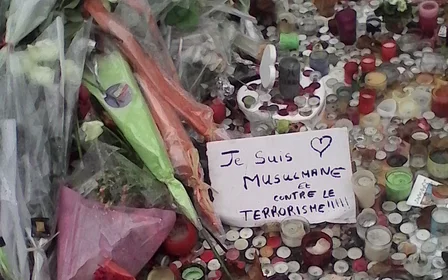 Je Suis ♡
MUSULMANE
et
CONTRE LE
TERRORISME!!!!!